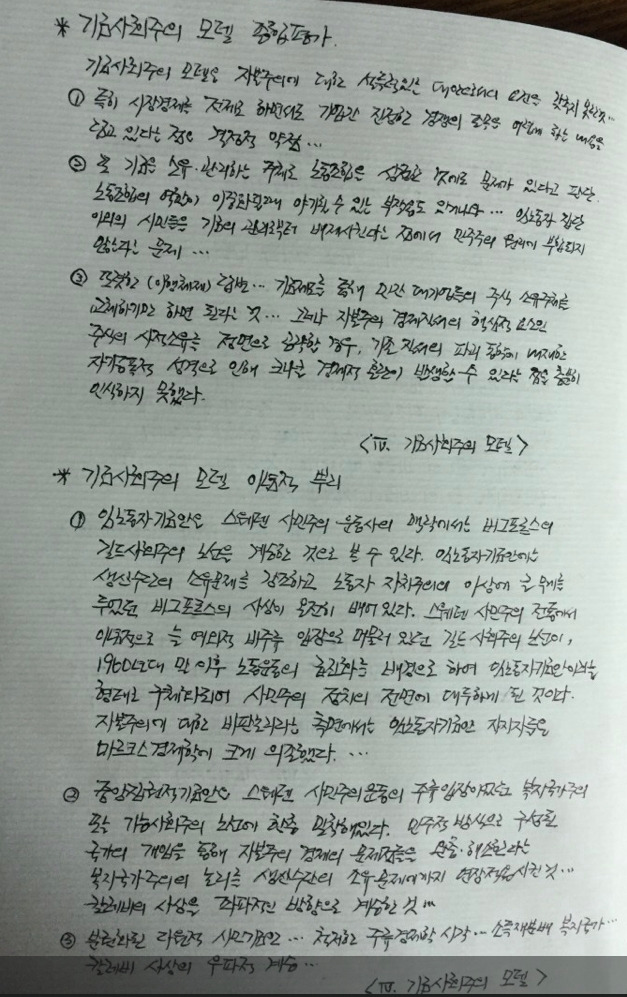 * 기금사회주의 모델 종합평가.
기금사회주의 모델은 자본주의에 대한 설득력있는 대안으로서의 요건을 갖추지 못한 것...
① 특히 시장경제를 전제로 하면서도 기업간 진정한 경쟁의
담고 있다는 점은 결정적 약점...
② 또 기금 소유·관리하는 주체로 노동조합을 상정한 것에도 문제가 있다고 판단.
노동조합의 역할이 이질화됨에 야기될 수 있는 부작용도 있거니와... 임노동자 집단
이외의 시민들을 기금의 관리로부터 배제시킨다는 점에서 민주주의 원리에 부합되지
않는다는 문제...
③ 또렷한 (이행체제) 답변... 기금제도를 통해 민간 대기업들의 주식 소유주체를
교체하기만 하면 된다는 것... 그러나 자본주의 경제질서의 핵심적 요소인
주식의 사적소유를 정면으로 공략할 경우, 기존 질서의 파괴 내재한
성격으로 인해 크나큰 경제적 혼란이 발생할 수 있다는 점을 충분히
인식하지 못했다.
<Ⅳ. 기금사회주의 모델>
* 기금사회주의 모델 이론적 뿌리
① 임노동자기금안은 스웨덴 사민주의 운동사의 맥락에서는 비그포르스의
길드사회주의 노선을 계승한 것으로 볼 수 있다. 임노동자기금안에는
생산수단의 소유문제를 강조하고 노동자 자치주의의 이상에 큰 무게를
두었던 비그포르스의 사상이 온전히 배어 있다. 스웨덴 사민주의 전통에서
이론적으로 늘 예외적 비주류 입장으로 머물러 있던 길드 사회주의 노선이,
1960년대 말 이후 노동운동의 급진화를 배경으로 하여 임노동자기금안이라는
형태로 구체화되어 사민주의 정치의 전면에 대두하게 된 것이다.
자본주의에 대한 비판논리라는 측면에서는 임노동자기금안 지지자들은
마르크스 경제학에 크게 의존했다. ...
② 중앙집권적기금안은 스웨덴 사민주의운동의 주류입장이었던 복지국가주의
또는 기능사회주의 노선에 한층 밀착해있다. 민주적 방식으로 구성된
국가의 개입을 통해 자본주의 경제의 문제점들을 완충·해소한다는
복지국가주의의 논리를 생산수단의 소유문제에까지 연장적용시킨 것...
칼레비의 사상을 좌파적인 방향으로 계승한 것...
③ 분권화된 다원적 시민기금안... 철저한 주류경제학 시각... 소득재분배 복지국가...
칼레비 사상의 우파적 계승...
<Ⅳ. 기금사회주의 모델>